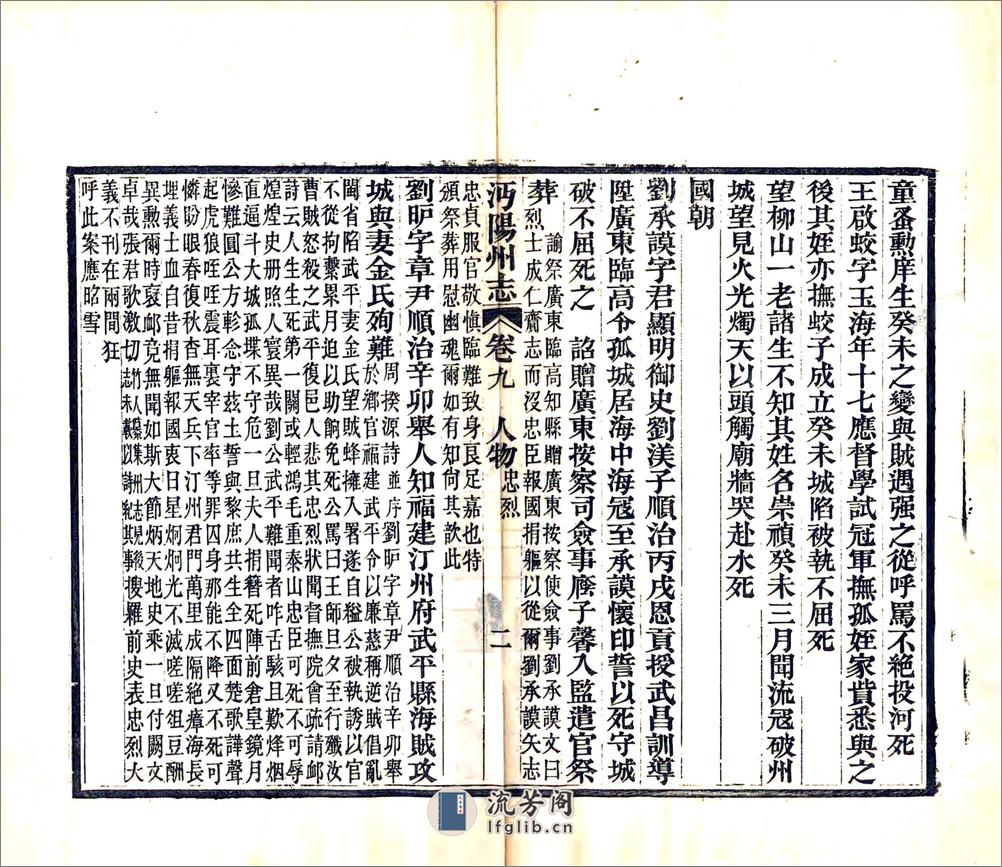 童蚤勲庠生癸未之變與賊遇强之從呼罵不絕投河死
王啟蛟字玉海年十七應督學試冠軍撫孤姪家貲悉與之
後其姪亦撫蛟子成立癸未城陷被執不屈死
望柳山一老諸生不知其姓名崇禎癸未三月聞流寇破州
城望見火光燭天以頭觸廟牆哭赴水死
國朝
劉承謨字君顯明御史劉渼子順治丙戌恩貢授武昌訓導
陞廣東臨高令孤城居海中海寇至承謨懷印誓以死守城
破不屈死之 詔贈廣東按察司僉事廕子馨入監遣官祭
葬
諭祭廣東臨高知縣贈廣東按察使僉事劉承謨文曰
烈士成仁齎志而沒忠臣報國捐軀以從爾劉承謨矢志
忠貞服官敬慎臨難致身良足嘉也特
頒祭葬用慰幽魂爾如有知尚其歆此
沔陽州志 卷九 人物 忠烈 二
劉昈字章尹順治辛卯舉人知福建汀州府武平縣海賊攻
城與妻金氏殉難
周揆源詩並序劉昈字章尹順治辛卯舉
於鄉官福建武平令以廉慈稱逆賊倡亂
閩省陷武平妻金氏望賊蜂擁入署遂自縊公被執誘以官
不從拘繫累月迫以助餉免死公罵曰王師旦夕至行殲汝
曹賊怒殺之武平復邑人悲其忠烈狀聞督撫院會疏請卹
詩云人生生死第一關或輕鴻毛重泰山忠臣可死不可辱
煌煌史册照人寰異哉劉公武平難聞者咋舌駭且歎烽烟
直逼斗大城孤堞不守危一旦夫人捐簪死陣前倉皇鏡月
慘難圓公方軫念守玆土誓與黎庶共生全四面楚歌譁聲
起虎狼咥咥震耳裏宰官率等罪囚身那能不降又不死可
憐盼眼春復秋杳無天兵下汀州君門萬里成隔絕瘴海長
埋義士血自昔捐軀報國衷日星炯炯光不滅嗟嗟俎豆酬
異勲爾時哀卹竟無聞如斯大節炳天地史乘一旦付闕文
卓哉張君歌激切
竹人纂集州志見毅
志未載以詩紀其事
後搜羅前史表忠烈大
義不刊在兩間狂
呼此案應昭雪
流芳阁
lfglib.cn